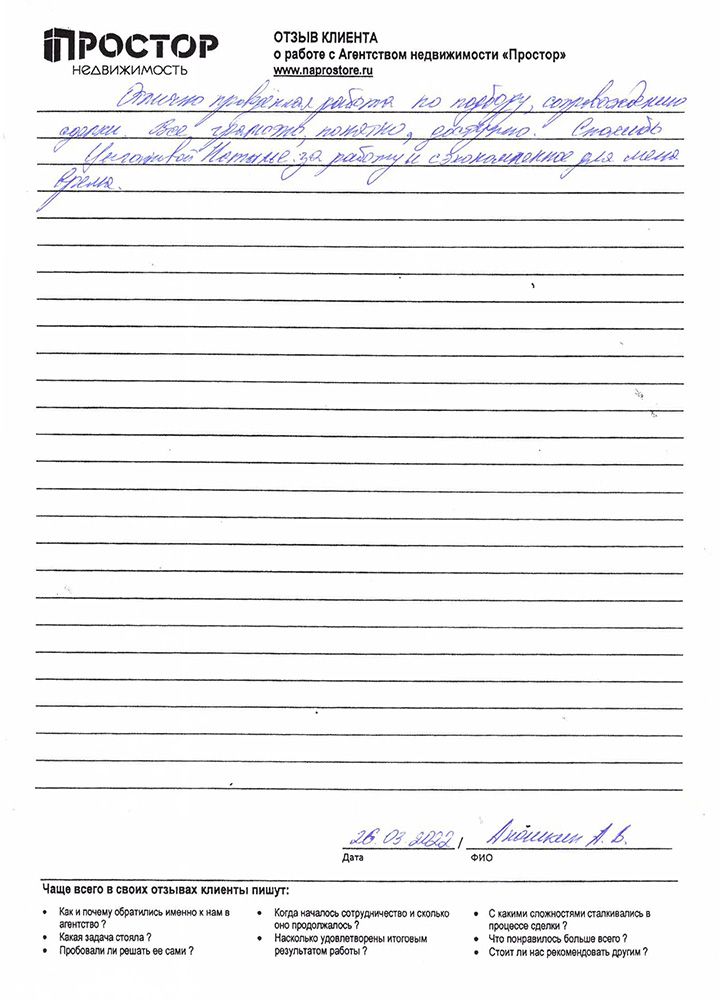 ПРОСТОР
НЕДВИЖИМОСТЬ
ОТЗЫВ КЛИЕНТА
о работе с Агентством недвижимости «Простор»
www.naprostore.ru
Отлично проведённая работа по подбору, сопровождению
сделки. Все грамотно, понятно, доступно. Спасибо
Наталье за работу и сэкономленное для меня
время.
26.03.2022 / Аношкин А. В.
Дата ФИО
Чаще всего в своих отзывах клиенты пишут:
• Как и почему обратились именно к нам в
агентство ?
• Какая задача стояла ?
• Пробовали ли решать ее сами ?
• Когда началось сотрудничество и сколько
оно продолжалось ?
• Насколько удовлетворены итоговым
результатом работы ?
• С какими сложностями сталкивались в
процессе сделки ?
• Что понравилось больше всего ?
• Стоит ли нас рекомендовать другим ?